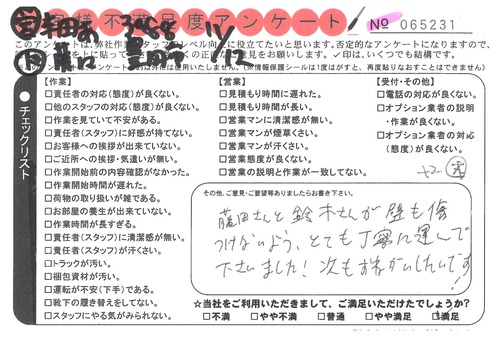 様 不満足度アンケート
No 065231
このアンケートは、弊社作業スタッフのレベル向上に役立てたいと思います。否定的なアンケートになりますので、
✓印は、いくつでも結構です。
チェックリスト
【作業】
□責任者の対応(態度)が良くない。
□他のスタッフの対応(態度)が良くない。
□作業を見ていて不安がある。
□責任者(スタッフ)に好感が持てない。
□お客様への挨拶が出来ていない。
□ご近所への挨拶・気遣いが無い。
□作業開始前の内容確認がなかった。
□作業開始時間が遅れた。
□荷物の取り扱いが雑である。
□お部屋の養生が出来ていない。
□作業時間が長すぎる。
□責任者(スタッフ)に清潔感が無い。
□責任者(スタッフ)が汗くさい。
□トラックが汚い。
□梱包資材が汚い。
□運転が不安(下手)である。
□靴下の履き替えをしてない。
□スタッフにやる気がみられない。
【営業】
□見積もり時間に遅れた。
□見積もり時間が長い。
□営業マンに清潔感が無い。
□営業マンが煙草くさい。
□営業マンが汗くさい。
□営業態度が良くない。
□営業の説明と作業が一致してない。
【受付・その他】
□電話の対応が良くない。
□オプション業者の説明
・作業が良くない。
□オプション業者の対応
(態度)が良くない。
その他、ご意見・ご要望等ありましたらお書き下さい。
藤田さんと鈴木さんが壁も傷
つけないよう、とても丁寧に運んで
下さいました!次もおねがいしたいです!
☆当社をご利用いただきまして、ご満足いただけたでしょうか?
□不満 □やや不満 □普通 □やや満足 □満足